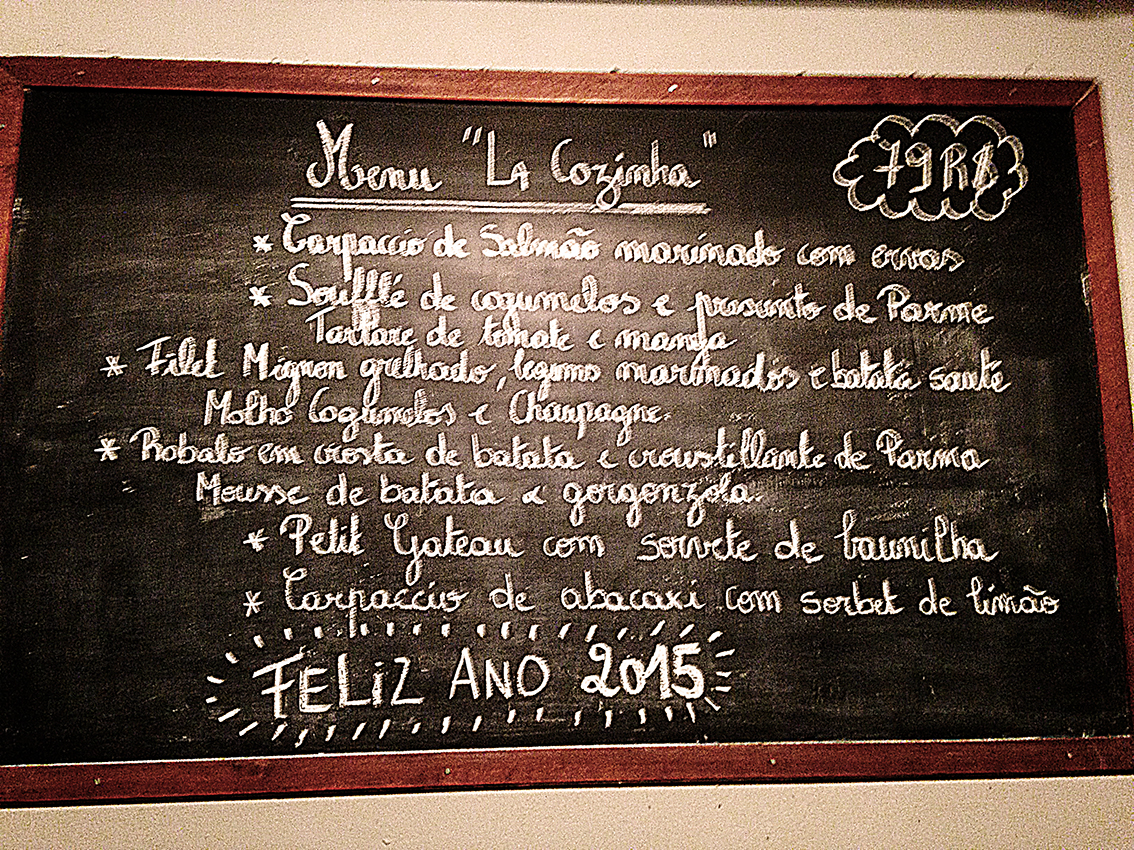 Menu "LA Cozinha"
79R$
* Carpaccio de Salmão marinado com ervas
* Soufflé de cogumelos e presunto de Parme
Tartare de tomate e manga
* Filet Mignon grelhado, legumes marinados e batata sauté
Molho Cogumelos e Champagne.
* Robalo em crosta de batata e croustillante de Parma
Mousse de batata & gorgonzola.
* Petit Gateau com sorvete de baunilha
* Carpaccio de abacaxi com sorbet de limão
FELiZ ANO 2015